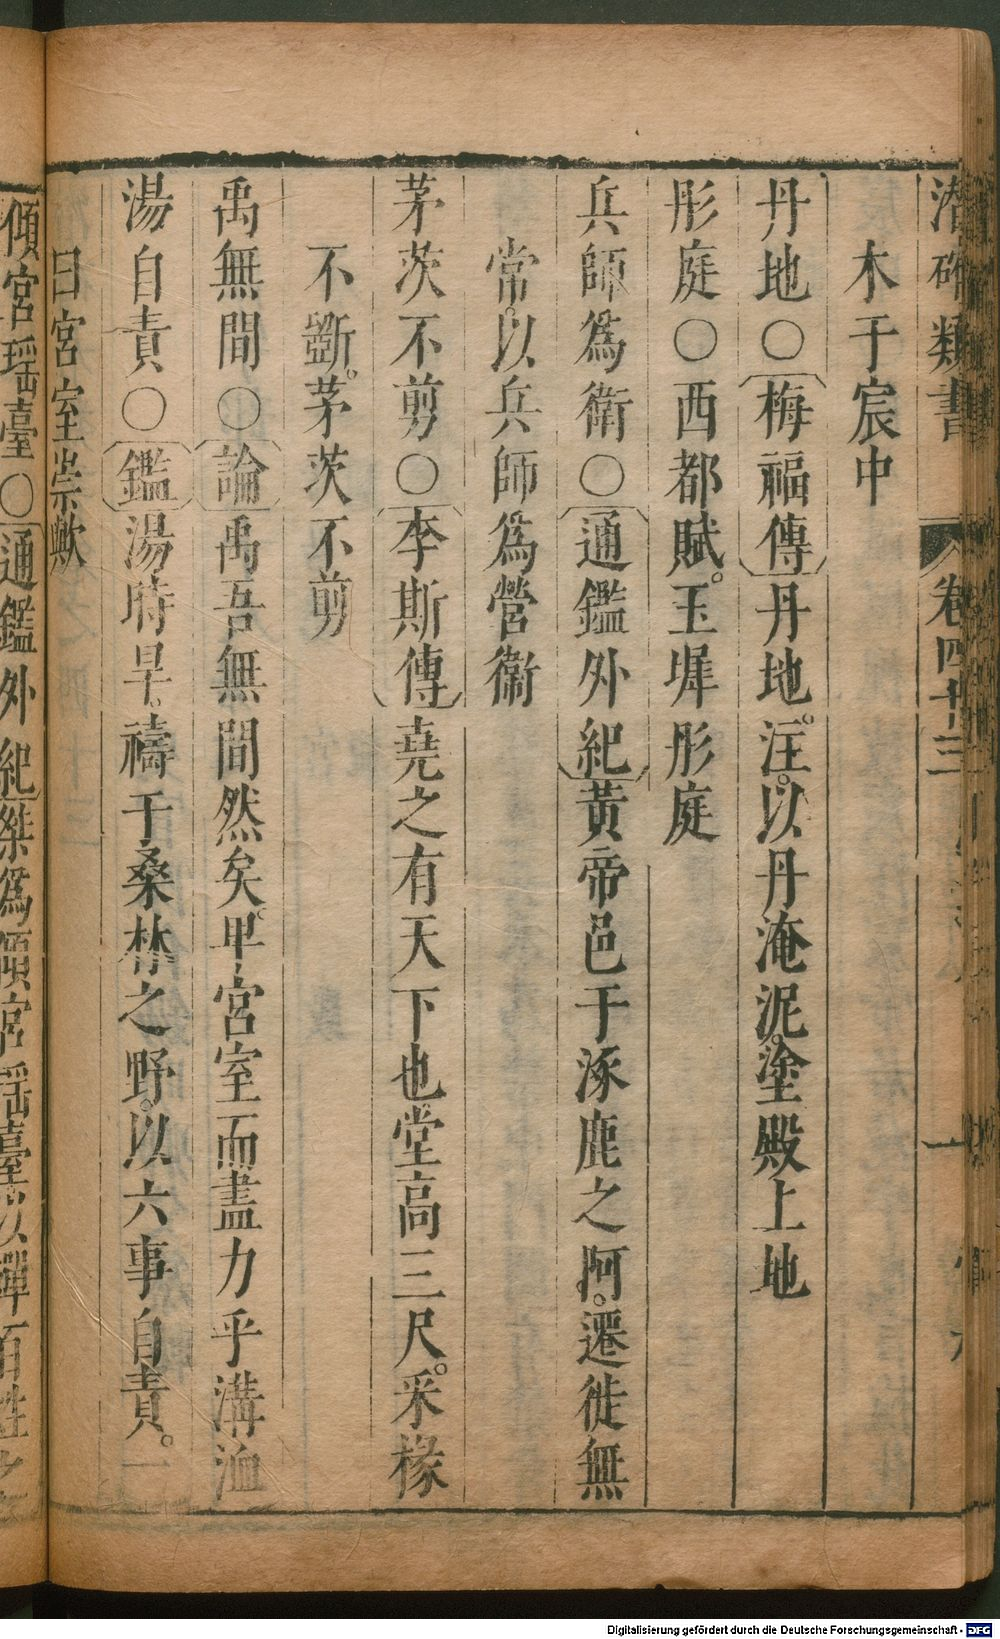 潛確類書 卷四十三
木于宸中
丹地○梅福傳丹地。注。以丹淹泥。塗殿上地
彤庭○西都賦。玉墀彤庭
兵師為衛○通鑑外紀黃帝邑于涿鹿之阿。遷徙無
常。以兵師為營衛
茅茨不剪○李斯傳堯之有天下也堂高三尺。采椽
不斵。茅茨不剪
禹無間○論禹吾無間然矣。卑宮室而盡力乎溝洫
湯自責○鑑湯時旱。禱于桑林之野。以六事自責。一
曰宮室崇歟
傾宮瑶臺○通鑑外紀桀為傾宮瑶臺以殫百姓之
Digitalisierung gefördert durch die Deutsche Forschungsgemeinschaft - DFG